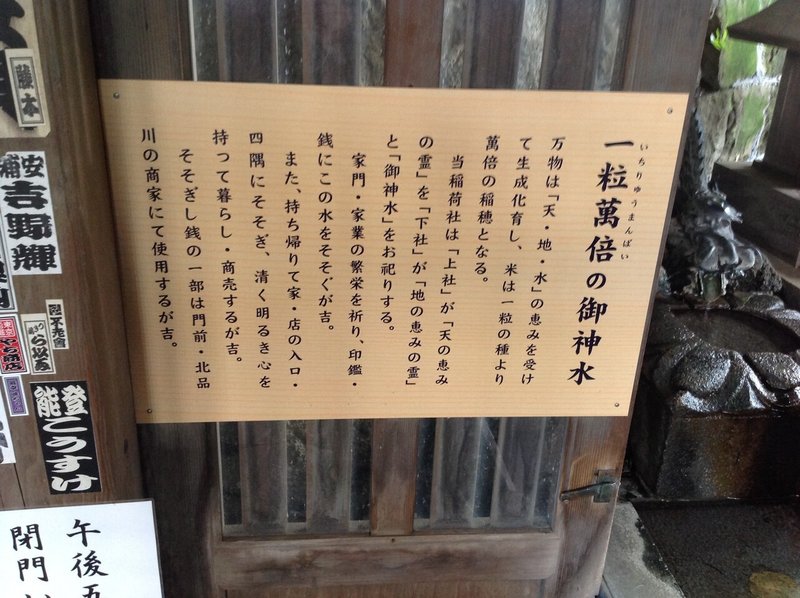 一粒萬倍の御神水
いちりゅうまんばい
万物は「天・地・水」の恵みを受け
て生成化育し、米は一粒の種より
萬倍の稲穂となる。
当稲荷社は「上社」が「天の恵み
の霊」を「下社」が「地の恵みの霊」
と「御神水」をお祀りする。
家門・家業の繁栄を祈り、印鑑・
銭にこの水をそそぐが吉。
また、持ち帰りて家・店の入口・
四隅にそそぎ、清く明るき心を
持つて暮らし・商売するが吉。
そそぎし銭の一部は門前・北品
川の商家にて使用するが吉。
藤本
安浦
吉野輝
能登
こうすけ
午後五
閉門